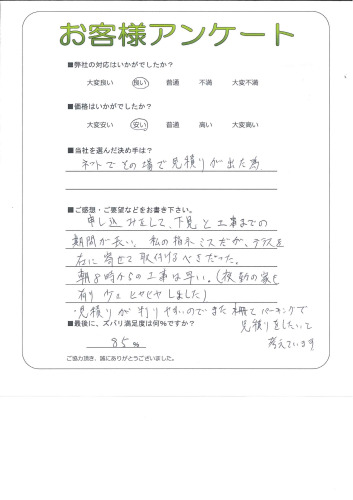 お客様アンケート
■弊社の対応はいかがでしたか?
大変良い 良い 普通 不満 大変不満
■価格はいかがでしたか?
大変安い 安い 普通 高い 大変高い
■当社を選んだ決め手は?
ネットでその場で見積りが出た為
■ご感想・ご要望などをお書き下さい。
申し込みをして、下見と工事までの
期間が長い。私の指示ミスだが、テラスを
右に寄せて取付けるべきだった。
朝8時からの工事は早い。(夜勤の家も
有り少々ヒヤヒヤしました)
・見積りが判りやすいのでまた棚とパーキングで
見積りをしたいと
考えています
■最後に、ズバリ満足度は何%ですか?
85%
ご協力頂き、誠にありがとうございました。